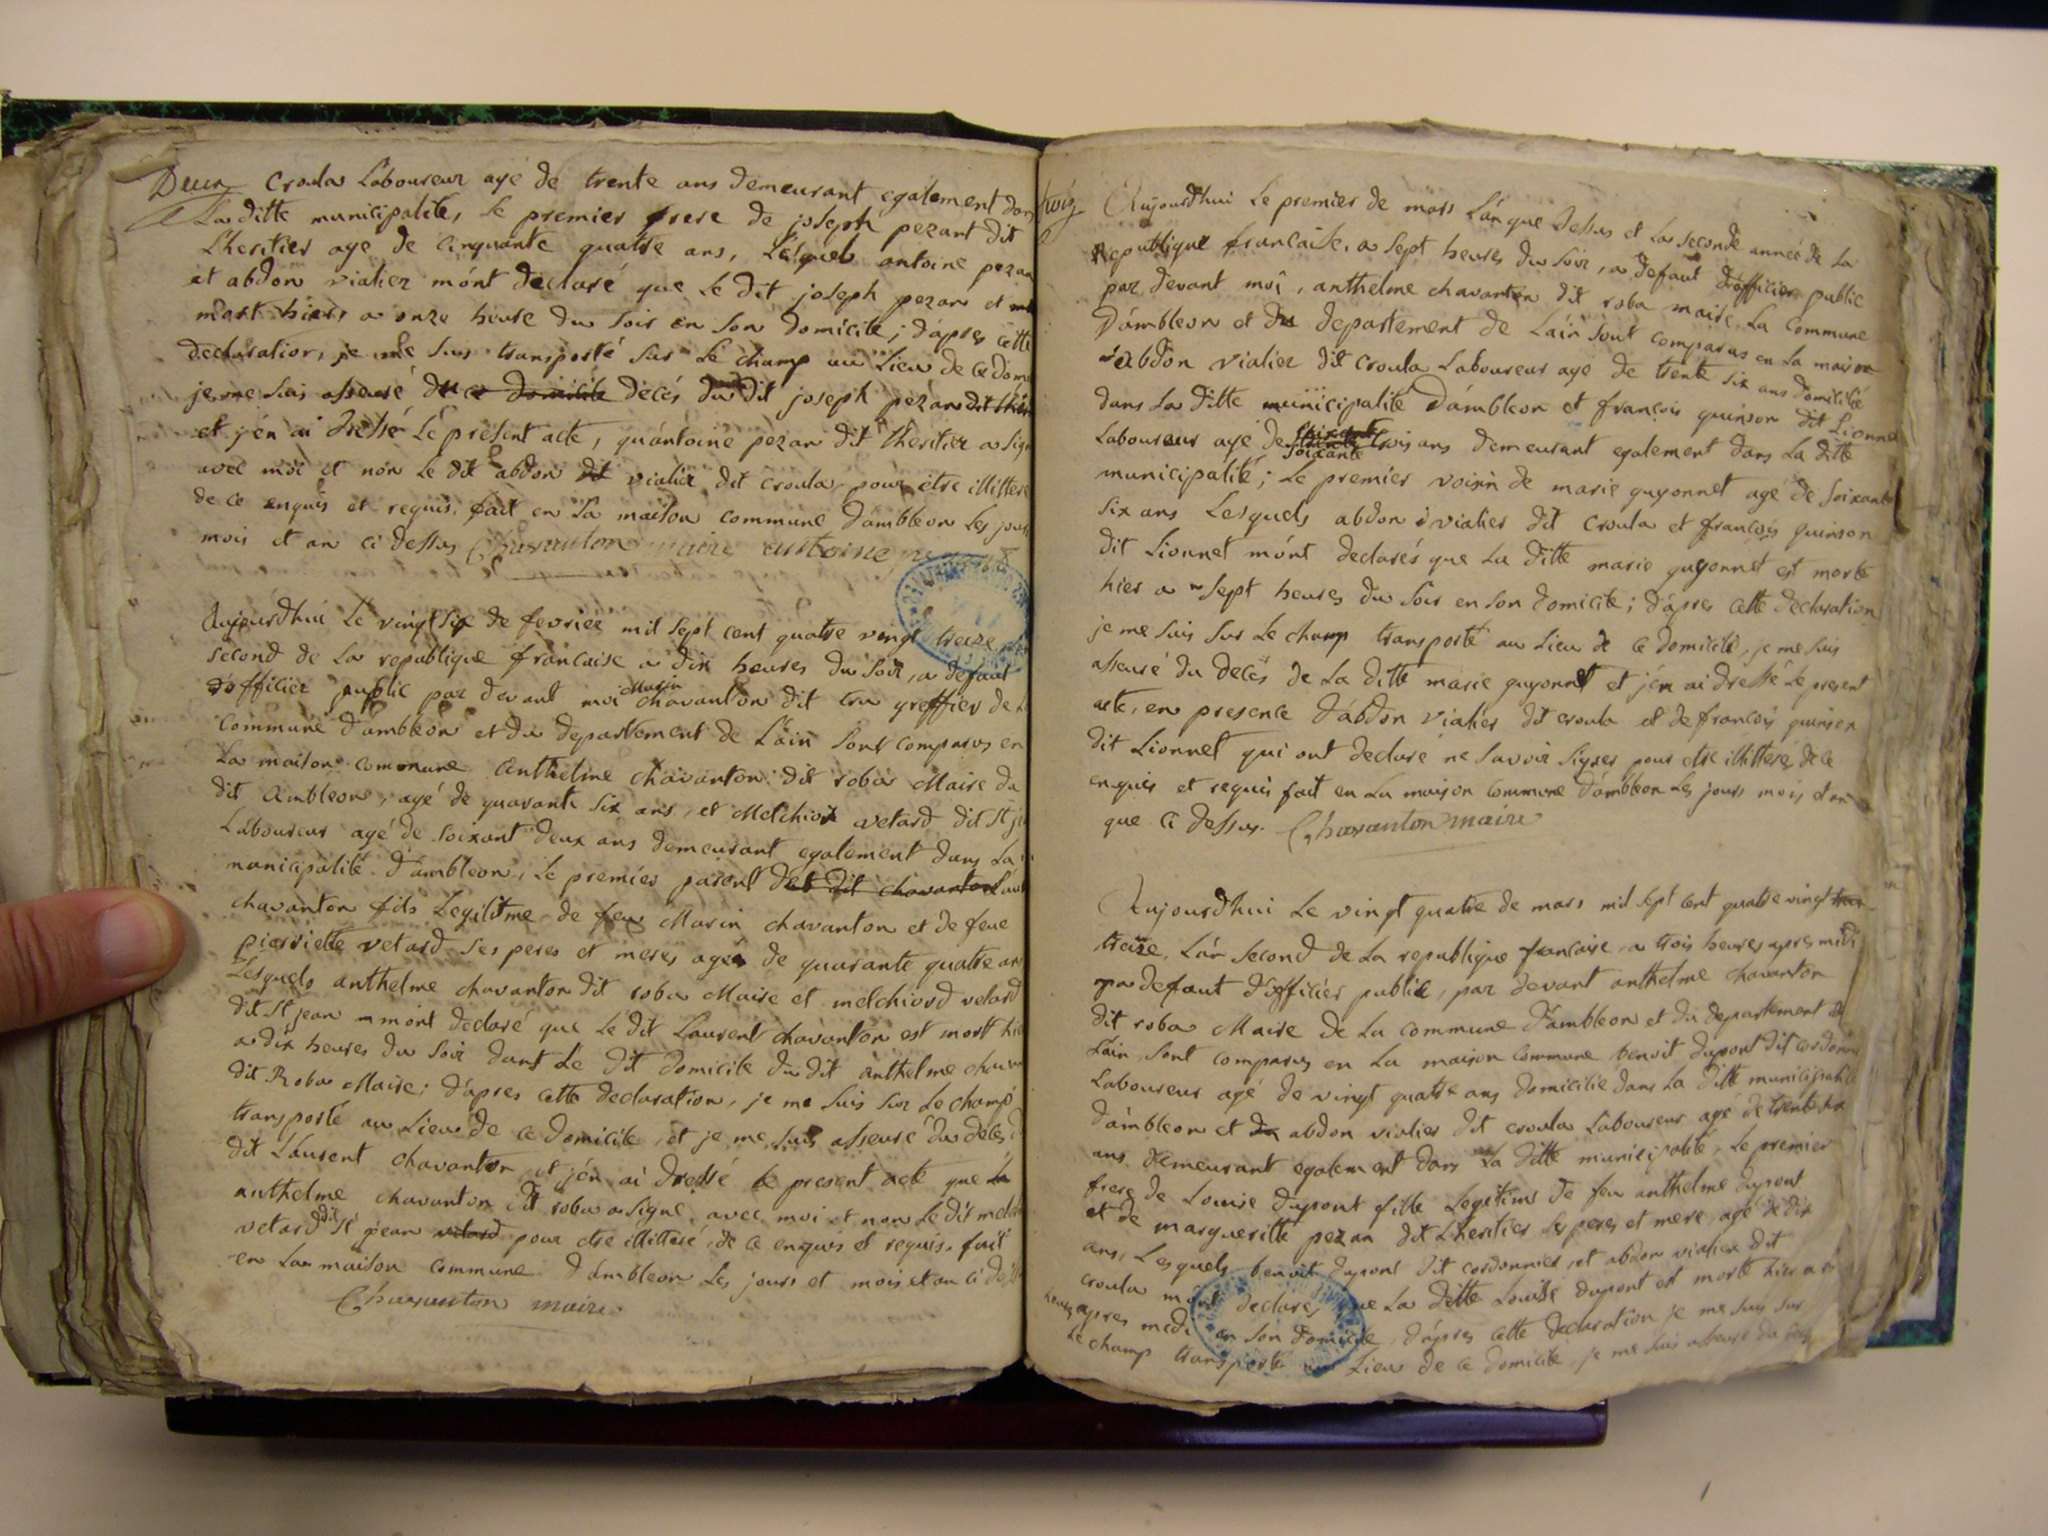 Deux
croula Laboureur agé de trente ans demeurant egalement dan
La ditte municipalité, Le premier frere de joseph pezant dit
L'heritier agé de cinquante quatre ans, Lesquels antoine pezan
et abdon vialier m'ont declaré que Le dit joseph pezan et
mort hiers a onze heure du soir en son domicile; d'apres cette
declaration, je me suis transporté sur Le champ au Lieu de ce dom
je me suis asseuré du ce domicile decés du dit joseph pezan dit Lhér
et j'én ai dressé Le présent acte, qu'antoine pezan dit Lheritier a sign
avec moi et non Le dit abdon dit vialier dit croula pour etre illittéré
de ce enquis et requis. fait en La maison commune d'ambleon Les jour
mois et an ci dessus Chavanton maire antoine
Aujourdhui Le vingt six de fevrier mil sept cent quatre vingt treize
second de La republique francaise a dix heures du soir, a defaut
d'officier public par devant moi Marin chavanton dit tru greffier de L
commune d'ambleon et du departement de L'ain sont comparus en
La maison commune anthelme chavanton dit roba Maire du
dit Ambleon, agé de quarante six ans, et Melchior vetard dit St je
Laboureur agé de soixant deux ans demeurant egalement dans La
municipalité d'ambleon, Le premier parent de dit chavanton Laur
chavanton fils Legilitme de feu Marin chavanton et de feue
pierriette vetard ses peres et meres agés de quarante quatre an
Lesquels anthelme chavanton dit roba Maire et melchiord vetard
dit St jean m'ont declaré que Le dit Laurent chavanton est mortt hie
a dix heures du soir dans Le dit domicile du dit anthelme chavan
dit Roba Maire; d'apres cette declaration, je me suis sur Le champ
transporté au Lieu de ce domicile, et je me suis asseuré du déces d
dit Laurent chavanton et j'én ai dressé Le present acte que
anthelme chavanton dit roba a signé avec moi et non Le dit melch
vetard dit St jean vetard pour etre illittéré, de ce enquis et requis. fait
en La maison commune d'ambleon Les jours et mois et an ci dess
Chavanton maire
troiz
Aujourdhui Le premier de mars L'an que dessus et La seconde année de La
Republique francaise, a sept heures du soir, a defaut d'officier public
par devant moi, anthelme chavanton dit roba maire La commune
D'ambleon et du departement de L'ain sont comparus en La maison
abdon vialier dit croula Laboureur agé de trente six ans domicilié
dans La ditte municipalité D'ambleon et francois quinson dit Lionnet
Laboureur agé de soixante trois ans demeurant egalement dans La ditte
municipalité; Le premier voisin de marie guyonnet agé de soixante
six ans Lesquels abdon vialier dit croula et francois quinson
dit Lionnet m'ont declarés que La ditte marie guyonnet est morte
hier a sept heures du soir en son domicile; d'apres cette declaration
je me suis sur Le champ transporté au Lieu de ce domicile, je me suis
asseuré du decés de La ditte marie guyonnet et j'én ai dressé Le present
acte, en presence d'abdon vialier dit croula et de francois quinson
dit Lionnet qui ont declaré ne savoir signer pour etre illittéres, de ce
enquis et requis fait en La maison commune d'ambleon Les jours mois et an
que ci dessus. Chavanton maire
Aujourdhui Le vingt quatre de mars mil sept cent quatre vingt
treize, L'an second de La republique francaise, a trois heures apres midi
a defaut d'officier public, par devant anthelme chavanton
dit roba Maire de La commune d'ambleon et du departement de
L'ain, sont comparus en La maison commune benoit dupont dit cordonnier
Laboureur agé de vingt quatre ans domicilié dans La ditte municipalité
d'ambleon et abdon vialier dit croula Laboureur agé de trente six
ans demeurant egalement dans La ditte municipalité, Le premier
frere de Louise dupont fille Legitime de feu anthelme dupont
et de margueritte pezan dit Lheritier ses peres et mere, agé de dix
ans, Lesquels benoit dupont dit cordonnier, et abdon vialier dit
croula m'ont declarés que La ditte Louise dupont est morte hier a
heures apres midi en son domicile, d'apres cette declaration je me suis sur
Le champ transporté au Lieu de ce domicile, je me suis asseuré du decés